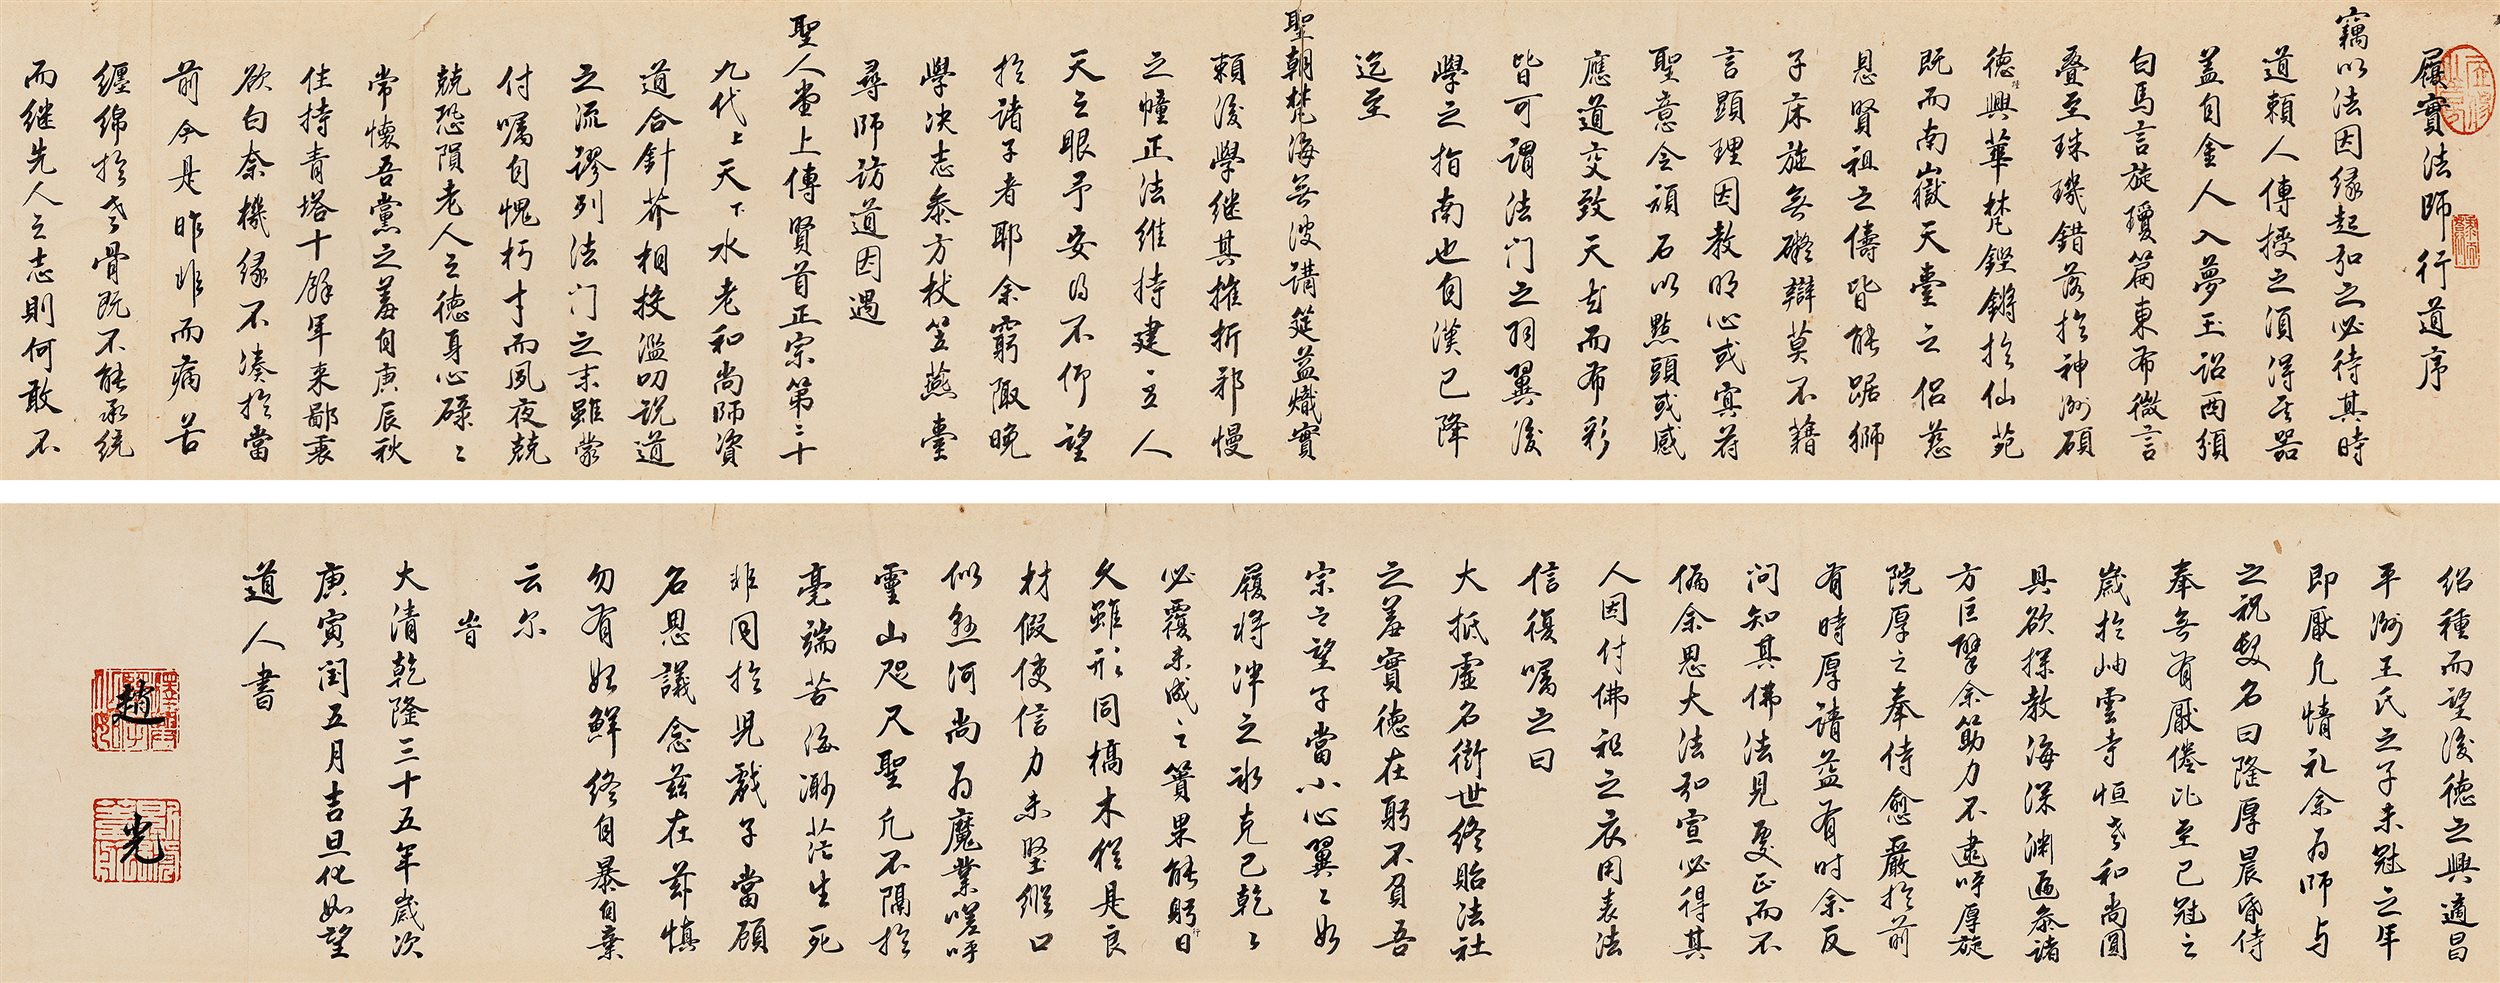 履實法師行道序
竊以法因緣起弘之必待其時
道賴人傳授之須得其器
盖自金人入夢王詔西頒
白馬言旋瓊篇東布微言
叠至珠璣錯落於神洲碩
德興華梵鏗鏘於仙苑
既而南嶽天臺之侶慈
恩賢祖之儔皆能踞獅
子床旋無礙辯莫不藉
言顯理因教明心或冥符
聖意令頑石以點頭或感
應道交致天花而布彩
皆可謂法门之羽翼後
學之指南也自漢已降
迄至
聖朝梵海無波講筵益熾實
賴後學继其摧折邪慢
之幢正法維持建立人
天之眼予安得不仰望
於諸子者耶余窮陬晚
學决志叅方杖笠燕臺
尋師訪道因遇
聖人堂上傳賢首正宗第三十
九代上天下水老和尚師資
道合針芥相投濫叨说道
之流謬列法门之末雖蒙
付嘱自愧朽才而夙夜兢
兢恐隕老人之德身心碌々
常懷吾黨之羞自庚辰秋
住持青塔十餘年来鄙衷
欲白奈機缘不凑於當
前今是昨非而病苦
纏綿於老骨既不能承统
而继先人之志則何敢不
绍種而望後德之興適昌
平洲王氏之子未冠之年
即厭凡情礼余為師与
之祝髮名曰隆厚晨昏侍
奉無有厭倦比至已冠之
歲於岫雲寺恒老和尚圓
具欲探教海深渊遍叅諸
方叵擎余筋力不逮呼厚旋
院厚之奉侍愈嚴於前
有時厚請益有时余反
问知其佛法見處正而不
偏余思大法弘宣必得其
人因付佛祖之衣用表法
信復嘱之曰
大抵虚名衒世终貽法社
之羞實德在躬不負吾
宗之望子當小心翼々如
履將泮之冰克已乾々
必覆未成之簣果能躬行日
久雖形同槁木從是良
材假使信力未堅縱口
似懸河尚為魔業嗟呼
靈山咫尺聖凡不隔於
毫端苦海渺茫生死
非同於兒戲子當顾
名思議念兹在兹慎
勿有始鮮终自暴自棄
云尔
旹
大清乾隆三十五年歲次
庚寅闰五月吉旦化如望
道人書
趙
光